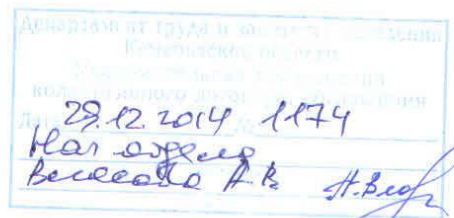 Департамент труда и занятости населения
Кемеровской области
Уведомительная регистрация
коллективного договора, соглашения
Дата 29.12.2014 № 1174
Нач отдела
Власова А.В. А.Влас